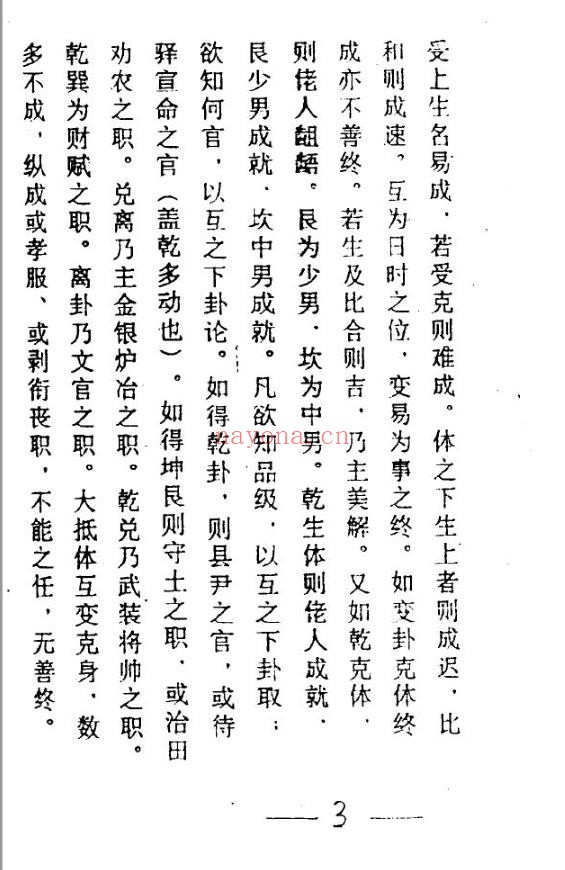 受上生名易成．若受克则难成。体之下生上者则成迟，比
和则成速。互为日时之位，变易为事之终。如变卦克体终
成亦不善终。若生及比合则吉，乃主美解。又如乾克体．
则佬人龃龉。艮为少男．坎为中男。乾生体则佬人成就．
艮少男成就．坎中男成就。凡欲知品级，以互之下卦取；
欲知何官，以互之下卦论。如得乾卦，则县尹之官，或待
驿宣命之官（盖乾多动也）。如得坤艮则守土之职，或治田
劝农之职。兑离乃主金银炉冶之职。乾兑乃武装将帅之职。
乾巽为财赋之职。离卦乃文官之职。大抵体互变克身，数
多不成，纵成或孝服、或剥衔丧职，不能之任，无善终。
nayona.cn
— 3 —